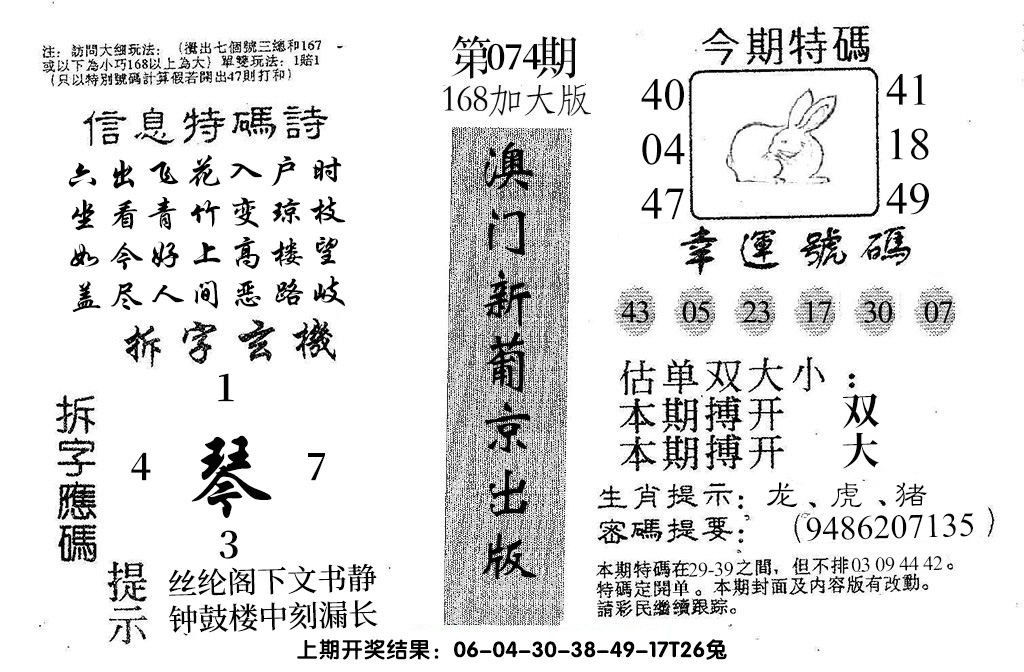 注：訪問大细玩法：（攪出七個號三總和167
或以下為小巧168以上為大）單雙玩法：1賠1
（只以特別號碼計算假若開出47則打和）
信息特碼詩
六出飞花入户时
坐看青竹变琼枝
如今好上高楼望
盖尽人间恶路岐
拆字玄機
1
4 琴 7
3
拆字應碼
提示
丝纶阁下文书静
钟鼓楼中刻漏长
第074期
168加大版
澳门新葡京出版
今期特碼
40 41
04 18
47 49
幸運號碼
43 05 23 17 30 07
估单双大小：
本期搏开 双
本期搏开 大
生肖提示：龙、虎、猪
密碼提要：（9486207135）
本期特碼在29-39之間，但不排03 09 44 42。
特碼定開单。本期封面及内容版有改動。
請彩民繼續跟踪。
上期开奖结果：06-04-30-38-49-17T26兔